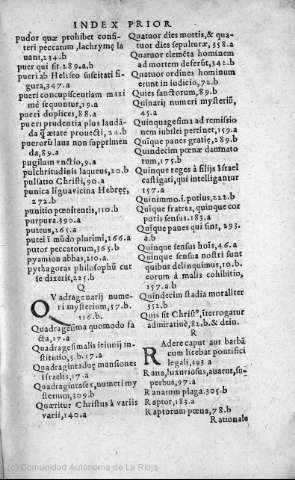 INDEX PRIOR
pudor quæ prohibet consti
teri peccatum, lachrymę la
uant, 234.b
puer qui sit 289.a.b
pueri ab Heliseo suscitati fi
gura, 347.a
pueri concupiscentiam maxi
mè sequuntur, 19.a
pueri duplices, 88.a
pueri prudentia plus laudā
da q̃ ætate prouecti, 24.b
puerorū laus non supprimen
da, 89.a
pugilum vnctio, 9.a
pulchritudinis laqueus, 20.b
pulsatio Christi, 90.a
punica liguavicina Hebręę,
272.b
punitio penitentis, 110.b
purpura 390.a
puteus, 165.a
putei i mūdo plurimi, 166.a
putor peccatorum, 365.b
pyamion abbas, 210.a
pythagoras philosophū cur
se dixerit, 225.b
Q
Quadragenarij nume
ri mysterium, 57.b.
116.b.
Quadragesima quomodo fa
cta, 17.a
Quadragesimalis ieiunij in
stitutio, 5.b. 17.a
Quadragintaduę mansiones
israelis, 17.a
Quadragintasex, numeri my
sterium, 309.b
Quæritur Christus à variis
variè, 140.a
Quatuor dies mortis, & qua-
tuor dies sepulturæ, 358.a
Quatuor elemēta hominem
ad mortem deferūt, 342.b
Quatuor ordines hominum
erunt in iudicio, 72.b
Quies sanctorum, 89.b
Quinarij numeri mysteriū,
45.a
Quinquagesima ad remissio
nem iubilei pertinet, 159.a
Quīque panes gratię, 289.b
Quindecim pœnæ damnato
rum, 175.b
Quinque reges à filijs Israel
castigati, qui intelligantur
157.a
Quinimmo. i. potius, 222.b
Quīque fratres, quinque cor
poris sensus. 183.a
Quīque panes qui sint, 293.
a.b
Quinque sensus hoīs, 46.a
Quinque sensus nostri sunt
quibus delinquimus, 10.b.
eorum à malis cohibitio,
157.a.b
Quindecim stadia moraliter
352.b
Quis sit Christ⁹, īterrogatur
admiratiuè, 82.b. & dein.
R
Radere caput aut barbā
cum licebat pontifici
legali, 193 a
Rana, luxuriosus, auarus, su-
perbus, 97.a
Ranarum plaga. 305.b
Raptor, 183.a
Raptorum pœna, 78.b
Rationale
(c) Comunidad Autónoma de La Rioja